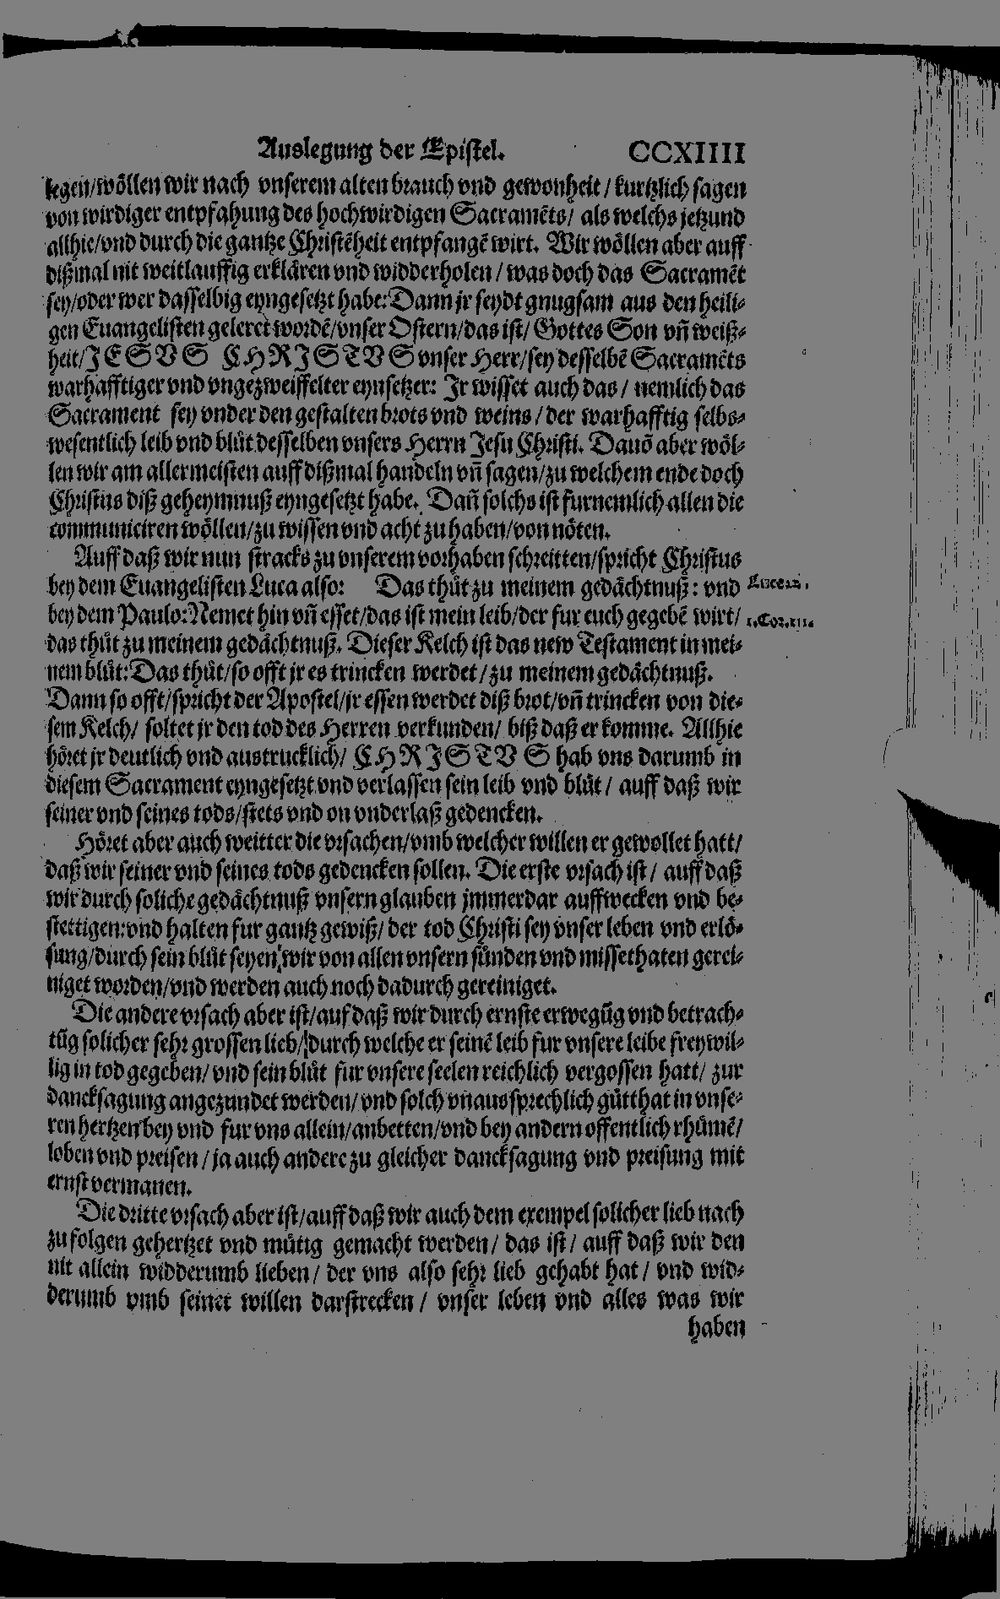 Auslegung der Epistel. CCXIIII
legen/wöllen wir nach vnserem alten brauch vnd gewonheit / kurtzlich sagen
von wirdiger entpfahung des hochwirdigen Sacramẽts/ als welchs jetzund
allhie/vnd durch die gantze Christẽheit entpfangẽ wirt. Wir wöllen aber auff
dißmal nit weitlauffig erklären vnd widderholen / was doch das Sacramẽt
sey/oder wer dasselbig eyngesetzt habe: Dann jr seydt gnugsam aus den heili-
gen Euangelisten geleret wordẽ/vnser Ostern/das ist/ Gottes Son vñ weiß-
heit/JESVS CHRISTVS vnser Herr/sey desselbẽ Sacramẽts
warhafftiger vnd vngezweiffelter eynsetzer: Jr wisset auch das / nemlich das
Sacrament sey vnder den gestalten brots vnd weins / der warhafftig selbs-
wesentlich leib vnd blůt desselben vnsers Herrn Jesu Christi. Dauõ aber wöl-
len wir am allermeisten auff dißmal handeln vñ sagen/zu welchem ende doch
Christus diß geheymnuß eyngesetzt habe. Dañ solchs ist furnemlich allen die
communiciren wöllen/zu wissen vnd acht zu haben/von nöten.
Auff daß wir nun stracks zu vnserem vorhaben schreitten/spricht Christus
bey dem Euangelisten Luca also: Das thůt zu meinem gedächtnuß: vnd
bey dem Paulo: Nemet hin vñ esset/das ist mein leib/der fur euch gegebẽ wirt/
1.Cor.xi.
das thůt zu meinem gedächtnuß. Dieser Kelch ist das new Testament in mei-
nem blůt: Das thůt/so offt jr es trincken werdet / zu meinem gedächtnuß.
Dann so offt/spricht der Apostel/jr essen werdet diß brot/vñ trincken von die-
sem Kelch/ soltet jr den tod des Herren verkunden/ biß daß er komme. Allhie
höret jr deutlich vnd austrucklich/ CHRISTVS hab vns darumb in
diesem Sacrament eyngesetzt vnd verlassen sein leib vnd blůt / auff daß wir
seiner vnd seines tods/stets vnd on vnderlaß gedencken.
Höret aber auch weitter die vrsachen/vmb welcher willen er gewollet hatt/
daß wir seiner vnd seines tods gedencken sollen. Die erste vrsach ist / auff daß
wir durch soliche gedächtnuß vnsern glauben jmmerdar auffwecken vnd be-
stettigen: vnd halten fur gantz gewiß/ der tod Christi sey vnser leben vnd erlö-
sung/durch sein blůt seyen wir von allen vnsern sünden vnd missethaten gerei-
niget worden/vnd werden auch noch dadurch gereiniget.
Die andere vrsach aber ist/auf daß wir durch ernste erwegũg vnd betrach-
tũg solicher sehr grossen lieb/ durch welche er seinẽ leib fur vnsere leibe freywil-
lig in tod gegeben/ vnd sein blůt fur vnsere seelen reichlich vergossen hatt/ zur
dancksagung angezundet werden/ vnd solch vnaussprechlich gůtthat in vnse-
ren hertzen bey vnd fur vns allein/anbetten/vnd bey andern offentlich rhümẽ/
loben vnd preisen / ja auch andere zu gleicher dancksagung vnd preisung mit
ernst vermanen.
Die dritte vrsach aber ist/auff daß wir auch dem exempel solicher lieb nach
zu folgen gehertzet vnd mütig gemacht werden / das ist / auff daß wir den
nit allein widderumb lieben / der vns also sehr lieb gehabt hat / vnd wid-
derumb vmb seinet willen darstrecken / vnser leben vnd alles was wir
haben